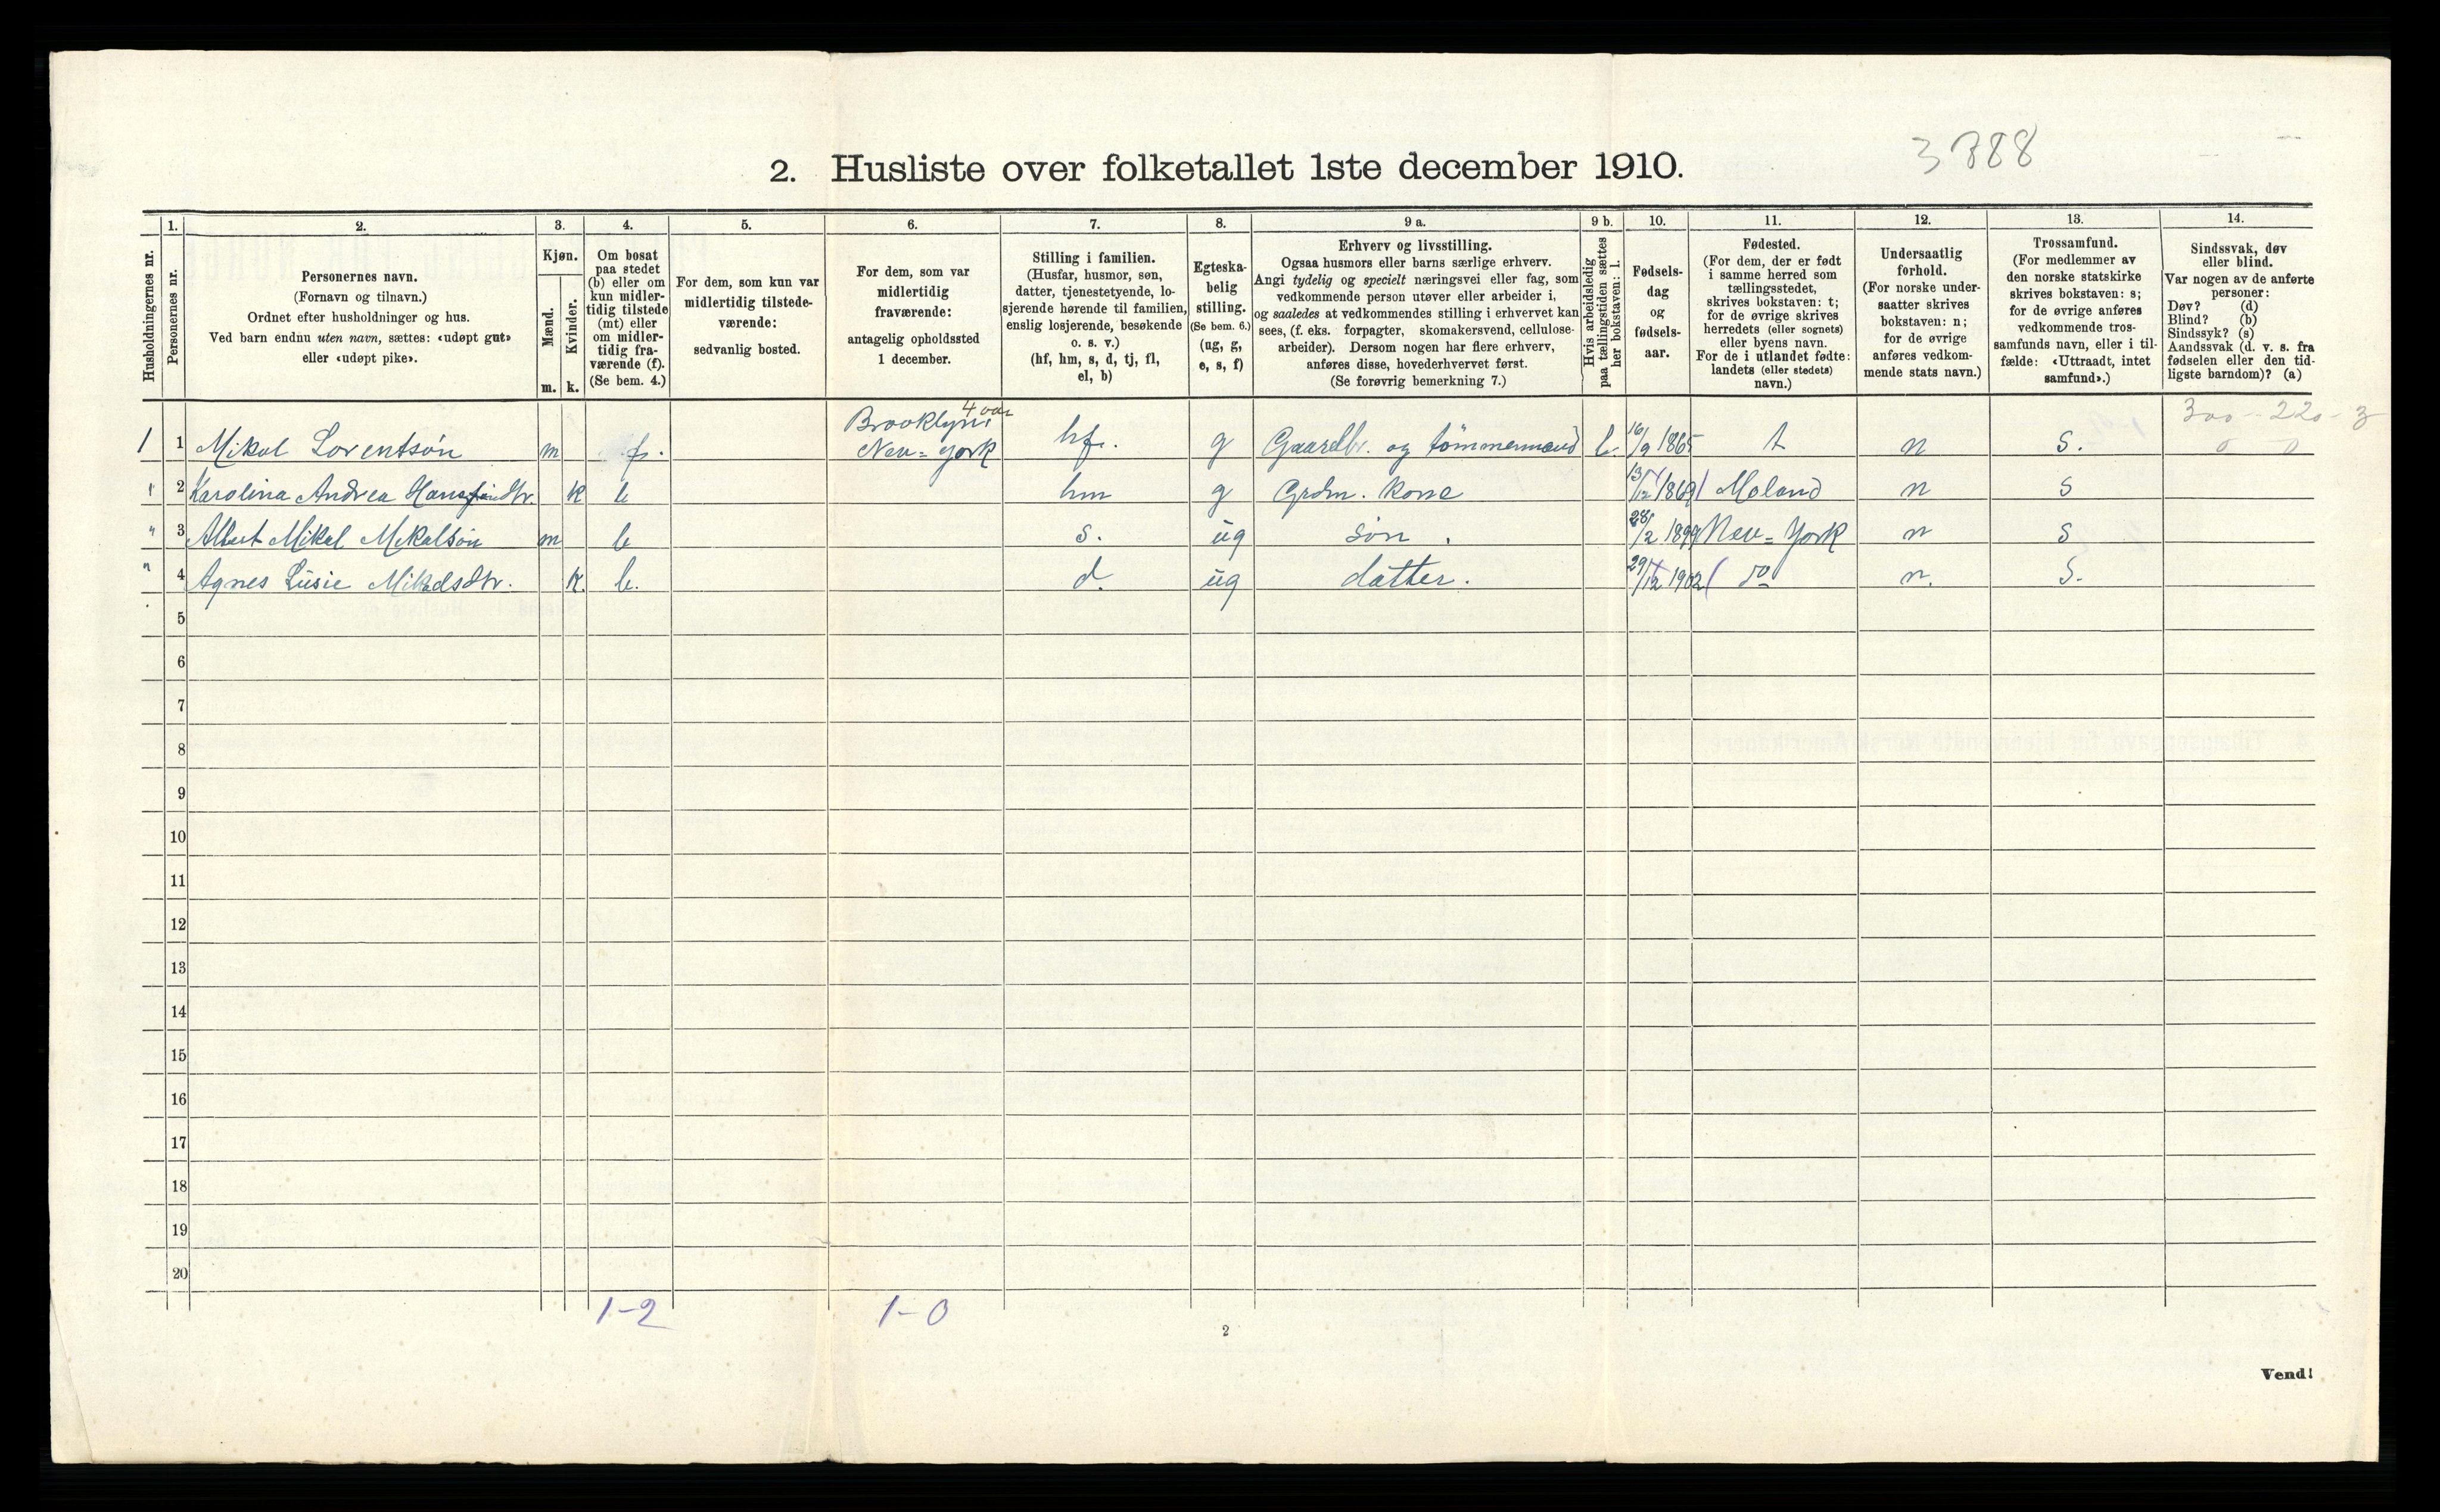 3788
2. Husliste over folketallet 1ste december 1910.
Husholdningernes nr.
1.
Personernes nr.
2.
Personernes navn.
(Fornavn og tilnavn.)
Ordnet efter husholdninger og hus.
Ved barn endnu uten navn, sættes: «udøpt gut»
eller «udøpt pike».
3.
Kjøn.
Mænd.
Kvinder.
m. k.
4.
Om bosat
paa stedet
(b) eller om
kun midler-
tidig tilstede
(mt) eller
om midler-
tidig fra-
værende (f).
(Se bem. 4.)
5.
For dem, som kun var
midlertidig tilstede-
værende:
sedvanlig bosted.
6.
For dem, som var
midlertidig
fraværende:
antagelig opholdssted
1 december.
7.
Stilling i familien.
(Husfar, husmor, søn,
datter, tjenestetyende, lo-
sjerende hørende til familien,
enslig losjerende, besøkende
o. s. v.)
(hf, hm, s, d, tj, fl,
el, b)
8.
Egteska-
belig
stilling.
(Se bem. 6.)
(ug, g,
e, s, f)
9 a.
Erhverv og livsstilling.
Ogsaa husmors eller barns særlige erhverv.
Angi tydelig og specielt næringsvei eller fag, som
vedkommende person utøver eller arbeider i,
og saaledes at vedkommendes stilling i erhvervet kan
sees, (f. eks. forpagter, skomakersvend, cellulose-
arbeider). Dersom nogen har flere erhverv,
anføres disse, hovederhvervet først.
(Se forøvrig bemerkning 7.)
9 b.
Hvis arbeidsledig
paa tællingstiden sættes
her bokstaven: l.
10.
Fødsels-
dag
og
fødsels-
aar.
11.
Fødested.
(For dem, der er født
i samme herred som
tællingsstedet,
skrives bokstaven: t;
for de øvrige skrives
herredets (eller sognets)
eller byens navn.
For de i utlandet fødte:
landets (eller stedets)
navn.)
12.
Undersaatlig
forhold.
(For norske under-
saatter skrives
bokstaven: n;
for de øvrige
anføres vedkom-
mende stats navn.)
13.
Trossamfund.
(For medlemmer av
den norske statskirke
skrives bokstaven: s;
for de øvrige anføres
vedkommende tros-
samfunds navn, eller i til-
fælde: «Uttraadt, intet
samfund».)
14.
Sindssvak, døv
eller blind.
Var nogen av de anførte
personer:
Døv? (d)
Blind? (b)
Sindssyk? (s)
Aandssvak (d. v. s. fra
fødselen eller den tid-
ligste barndom)? (a)
300 - 220 - 3
0 0
4 aar
1 1 Mikal Lorentsøn m f. Brooklyn New=York hf. g Gaardbr. og tømmermand 16/9 1865 t n s.
" 2 Karolina Andrea k b hm g Grdm. kone 13/12 1869 Moland n s
" 3 Albert Mikal Mikalsøn m b s. ug søn. 28/2 1899 New=York n s
" 4 Agnes Lusie Mikalsdtr. k. b. d. ug datter. 29/12 1902 do n. s.
5
6
7
8
9
10
11
12
13
14
15
16
17
18
19
20
1-2 1-0
2
Vend!